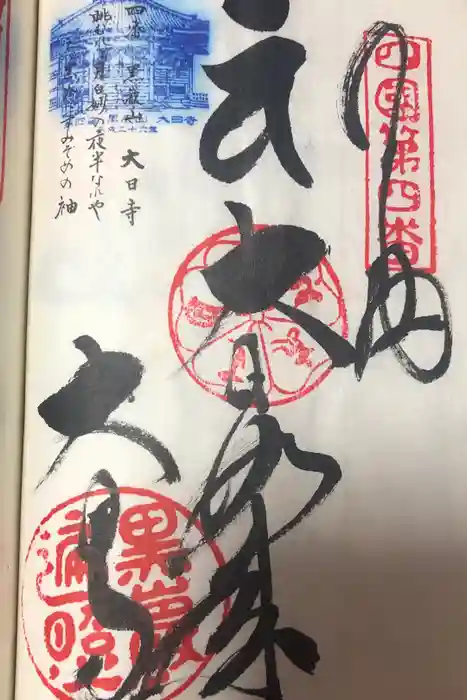 四國第四番
奉納
大日如来
大日寺
四番 黒巌山 大日寺
眺むれば月白妙の夜半なれや
ただ黒谷にすみぞめの袖
大日寺